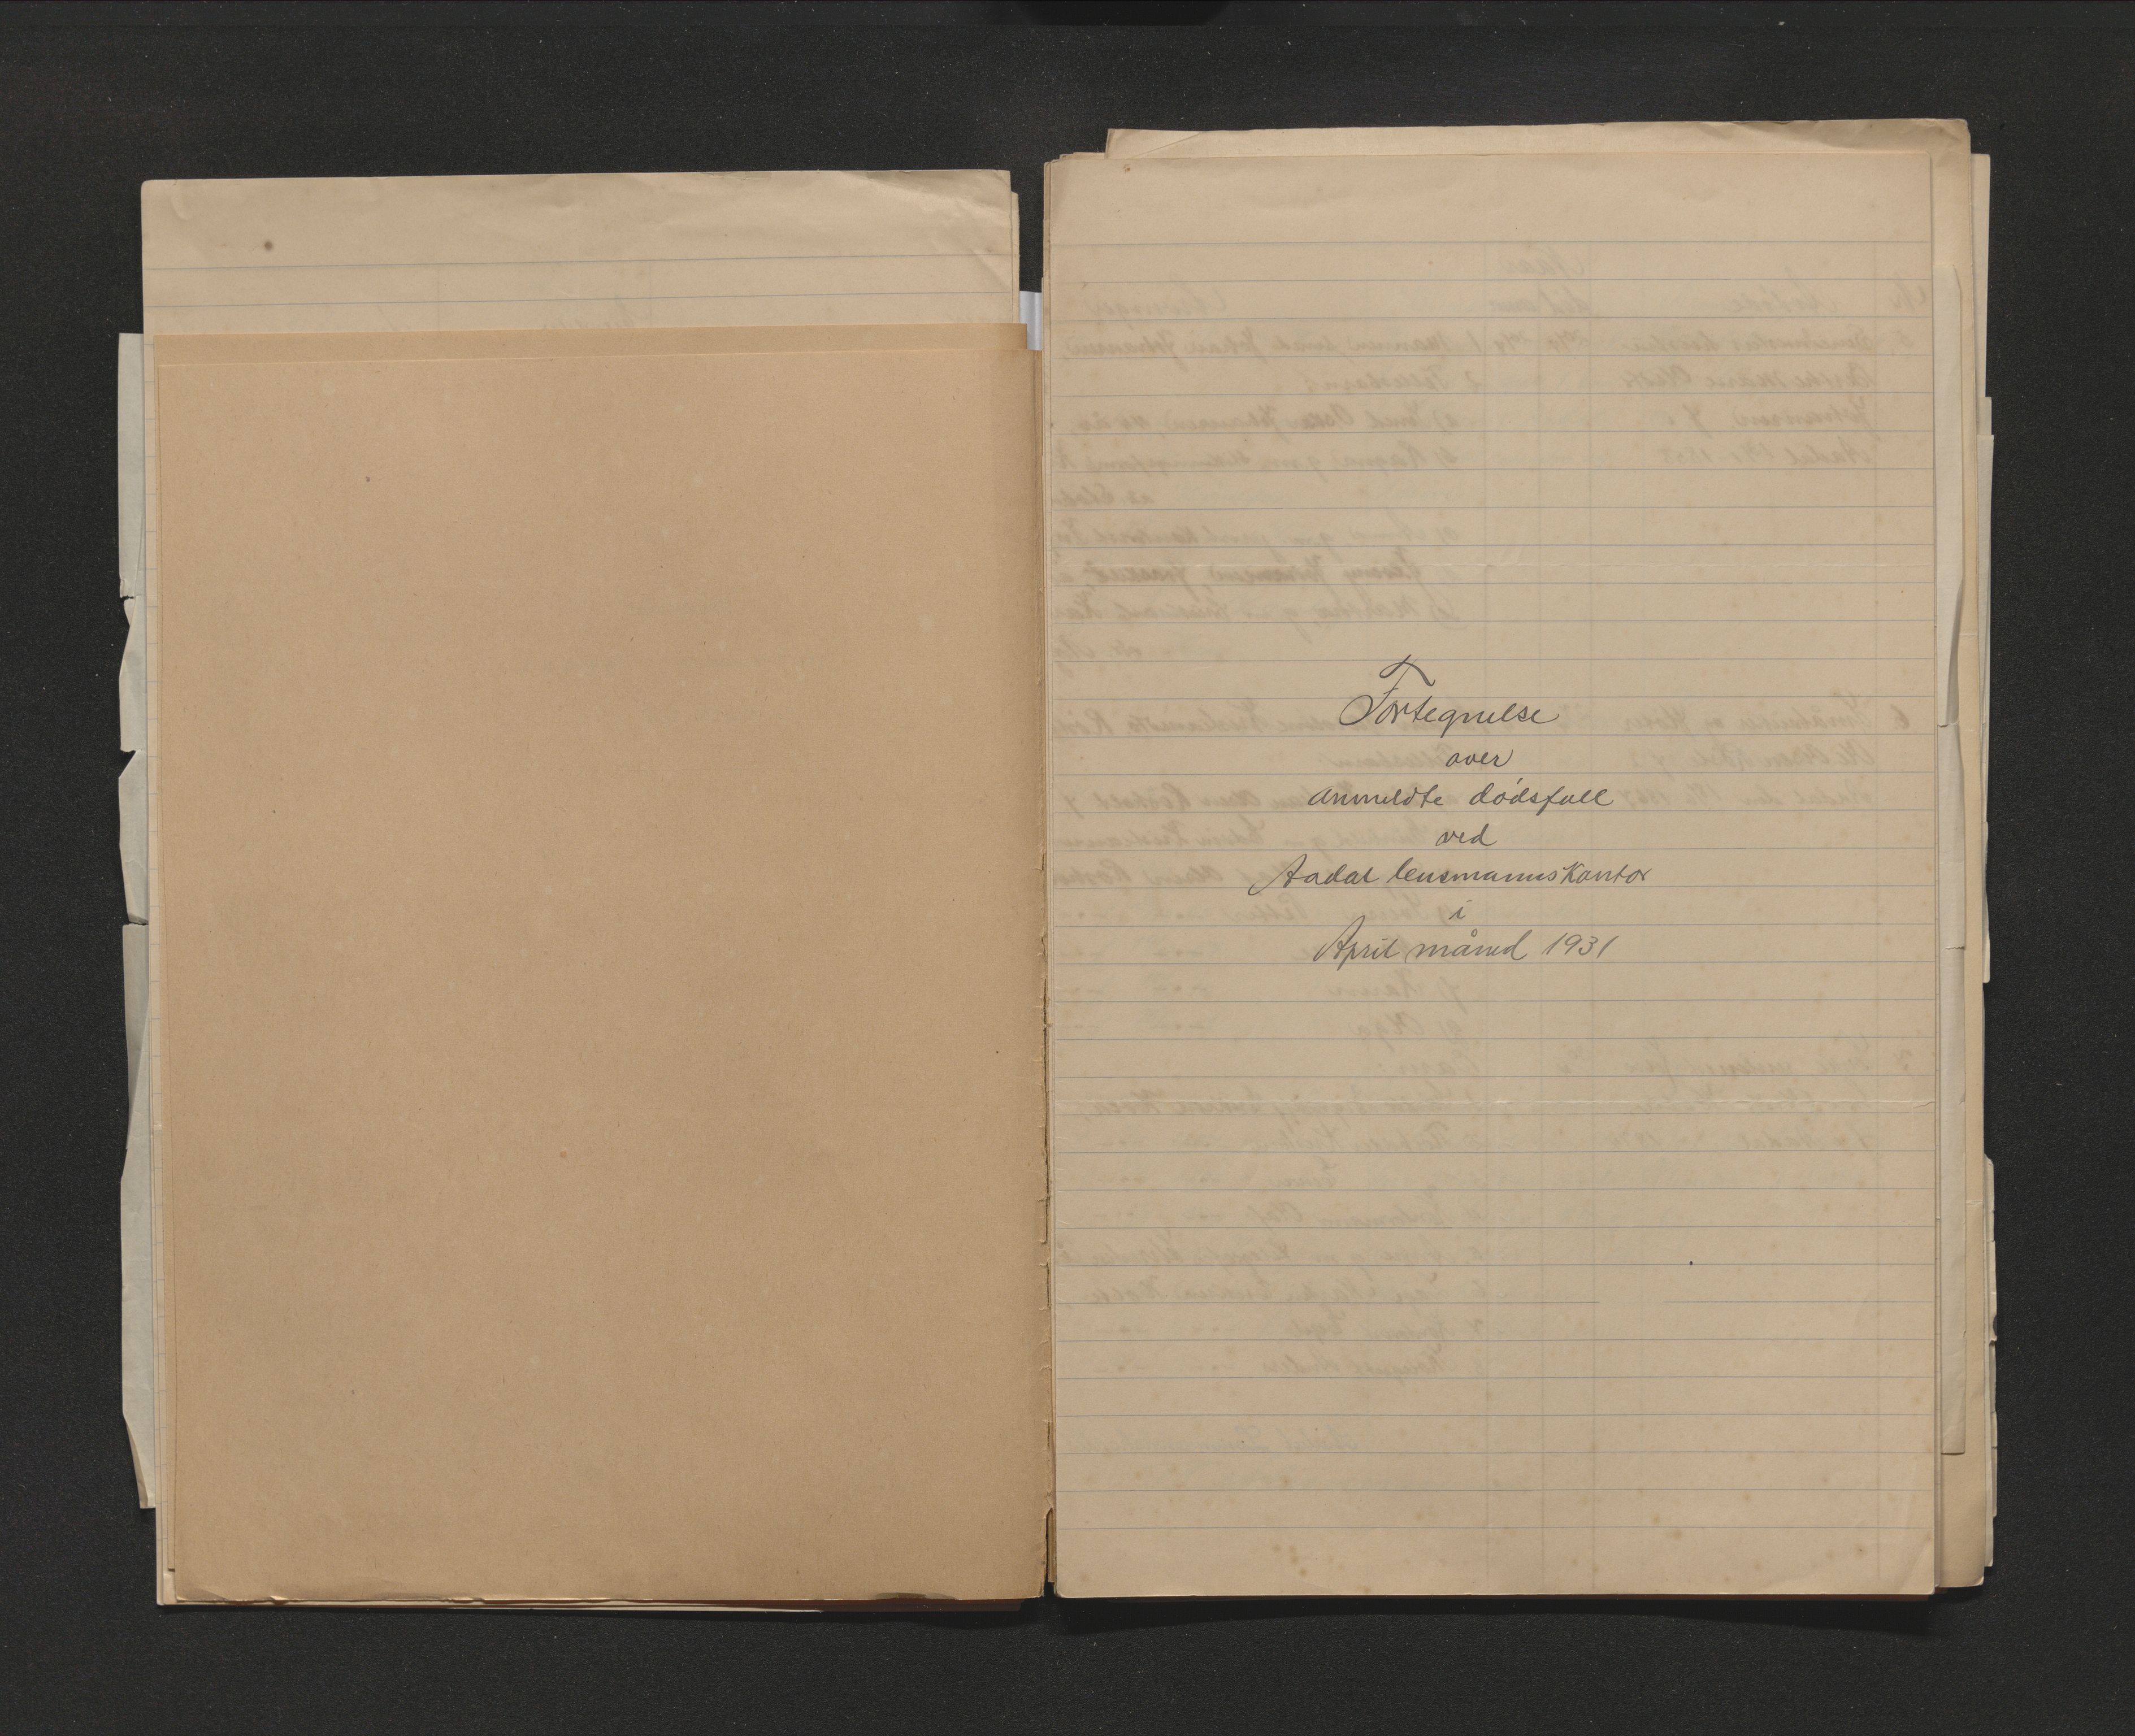 Fortegnelse
over
anmeldte dødsfall
ved
Aadal lensmannskontor
i
April måned 1931